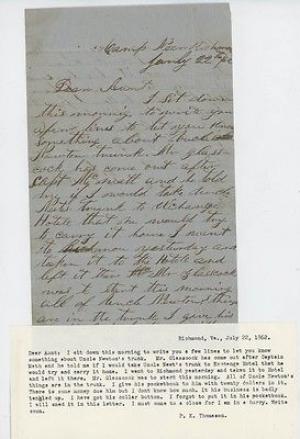 Camp Near Richmond
Dear Aunt
I sit down
this morning to write you
a few lines to let you know
something about Uncle
Newton trunk. Mr Glass-
cock has come out after
Capt and he told
me if I would take Uncle
trunk to Exchange
Hotell that he would try
to carry it home I went
to Richmon yesterday and
taken it to the Hotele and
left it there Mr Glascock
was to start this morning
all of Uncle Newton things
are in the trunk I give his
Richmond, Va., July 22, 1862.
Dear Aunt: I sit down this morning to write you a few lines to let you know
something about Uncle Newton's trunk. Mr. Glasscock has come out after Captain
Nath and he told me if I would take Uncle Newton's trunk to Exchange Hotel that he
would try and carry it home. I went to Richmond yesterday and taken it to Hotel
and left it there, Mr. Glasscock was to start this morning. All of Uncle Newton's
things are in the trunk. I give his pocketbook to him with twenty dollars in it.
There is some money due him but I dont know how much. It his business is badly
tangled up. I have got his collar button. I forgot to put it in his pocketbook.
I will send it in this letter. I must come to a close for I am in a hurry. Write
soon.
P. K. Thomason.